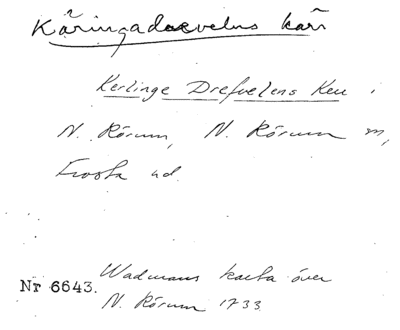 Käringadrevelns kärr
Kerlinge Drefvelens Kerr i
N. Rörum, N. Rörum sn,
Frosta hd.
Wadmans karta över
Nr 6643. N. Rörum 1733